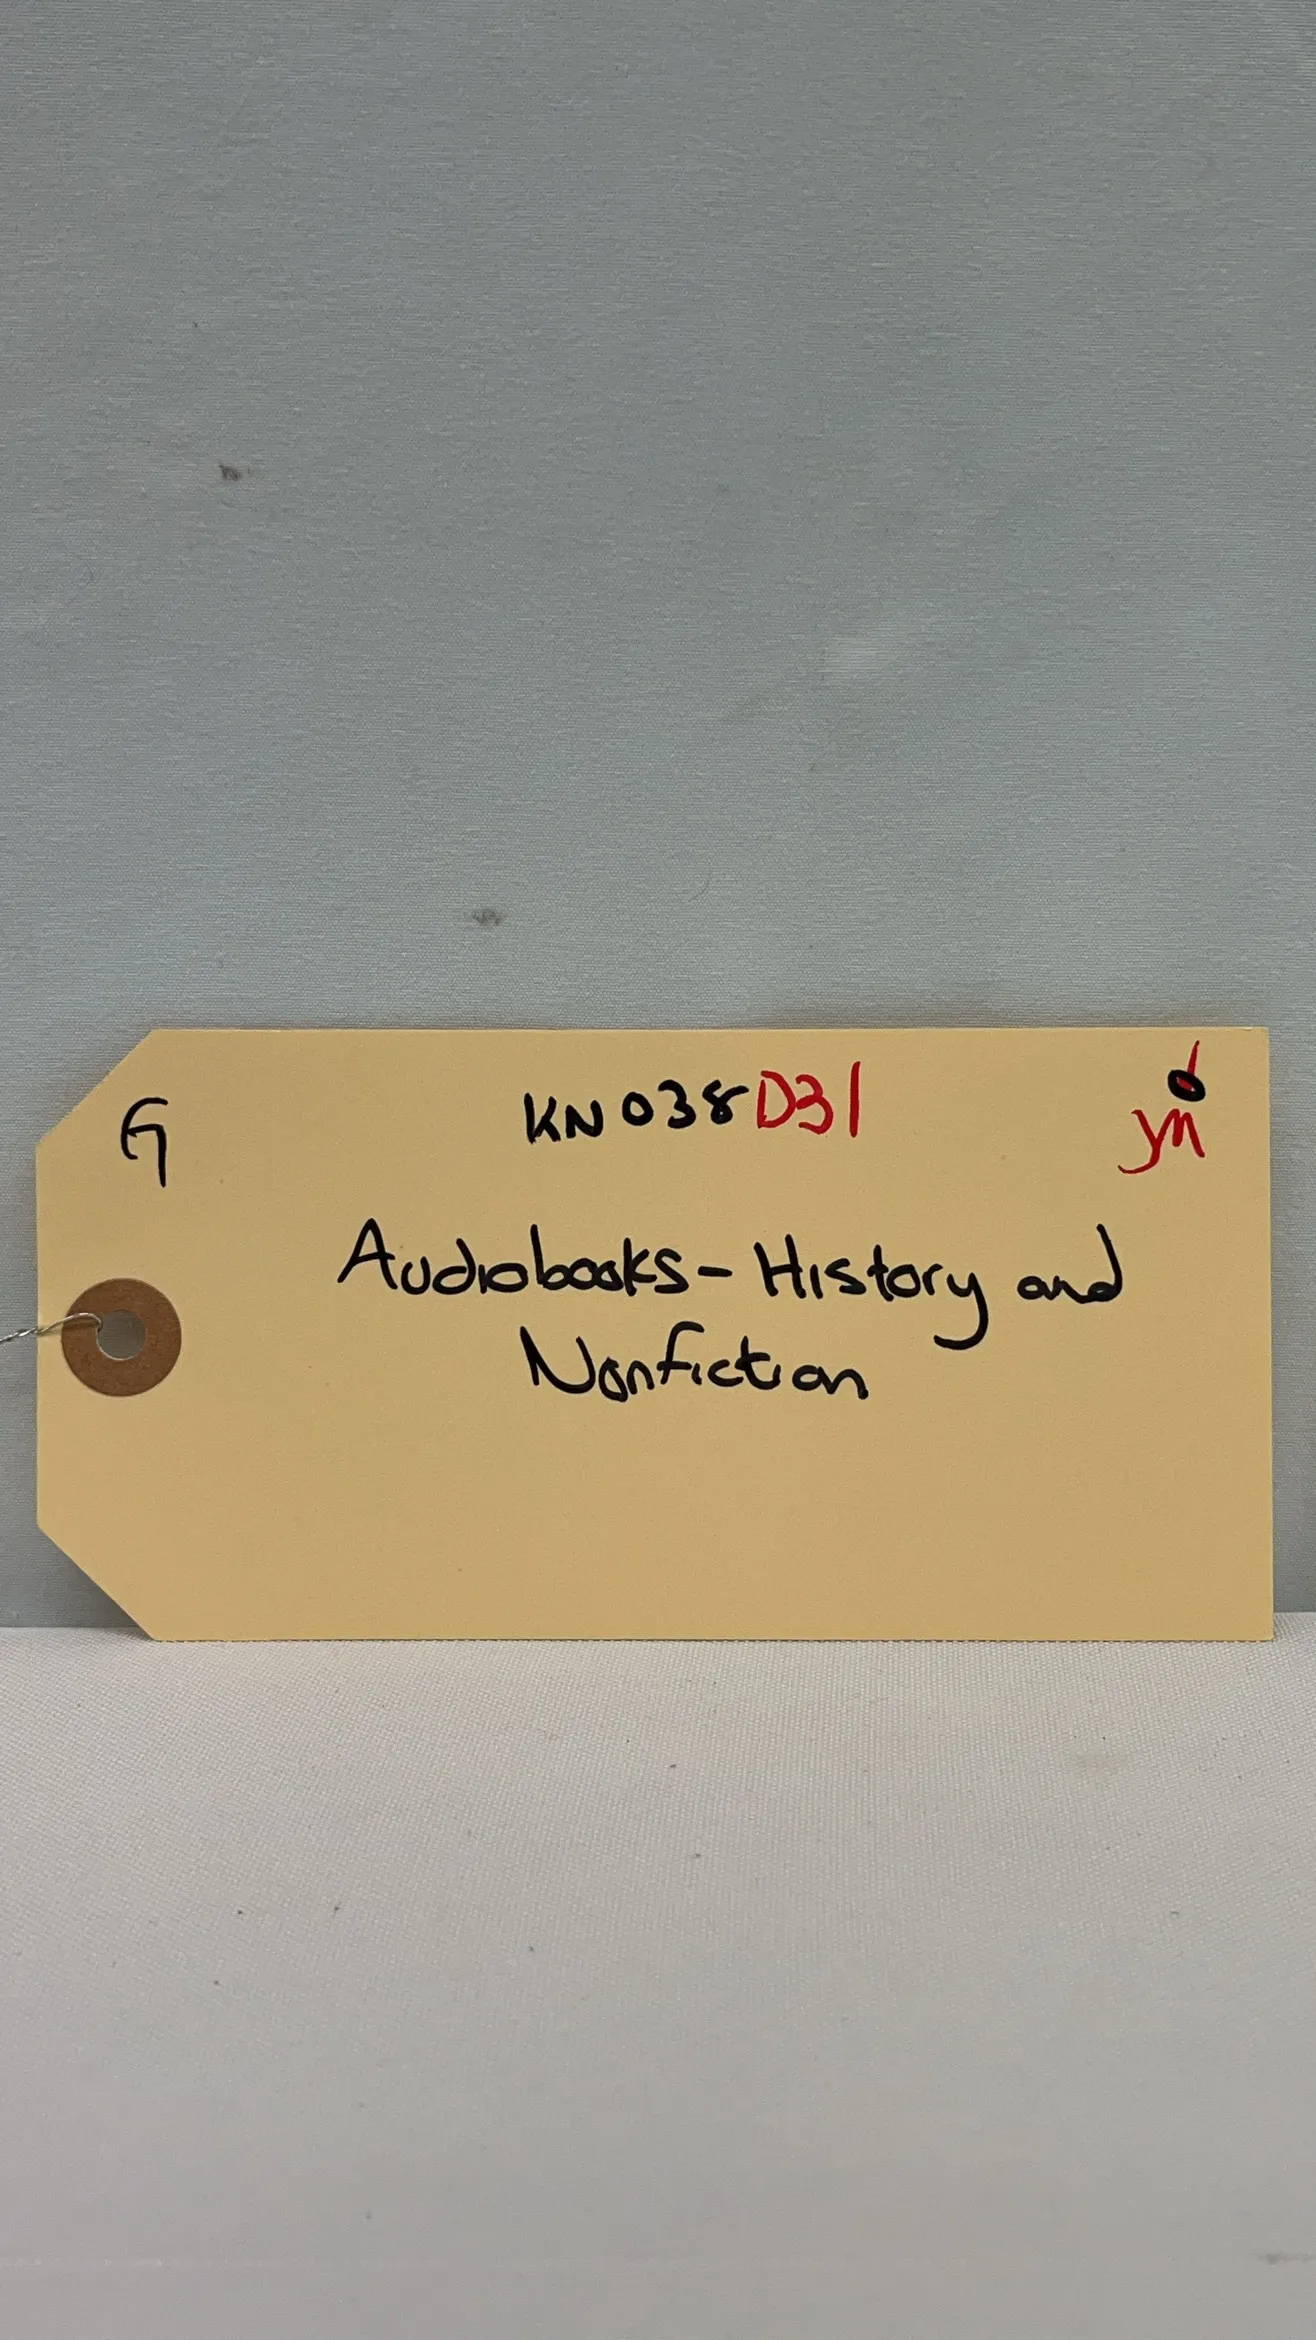 G
KN038D31
Audiobooks - History and
Nonfiction